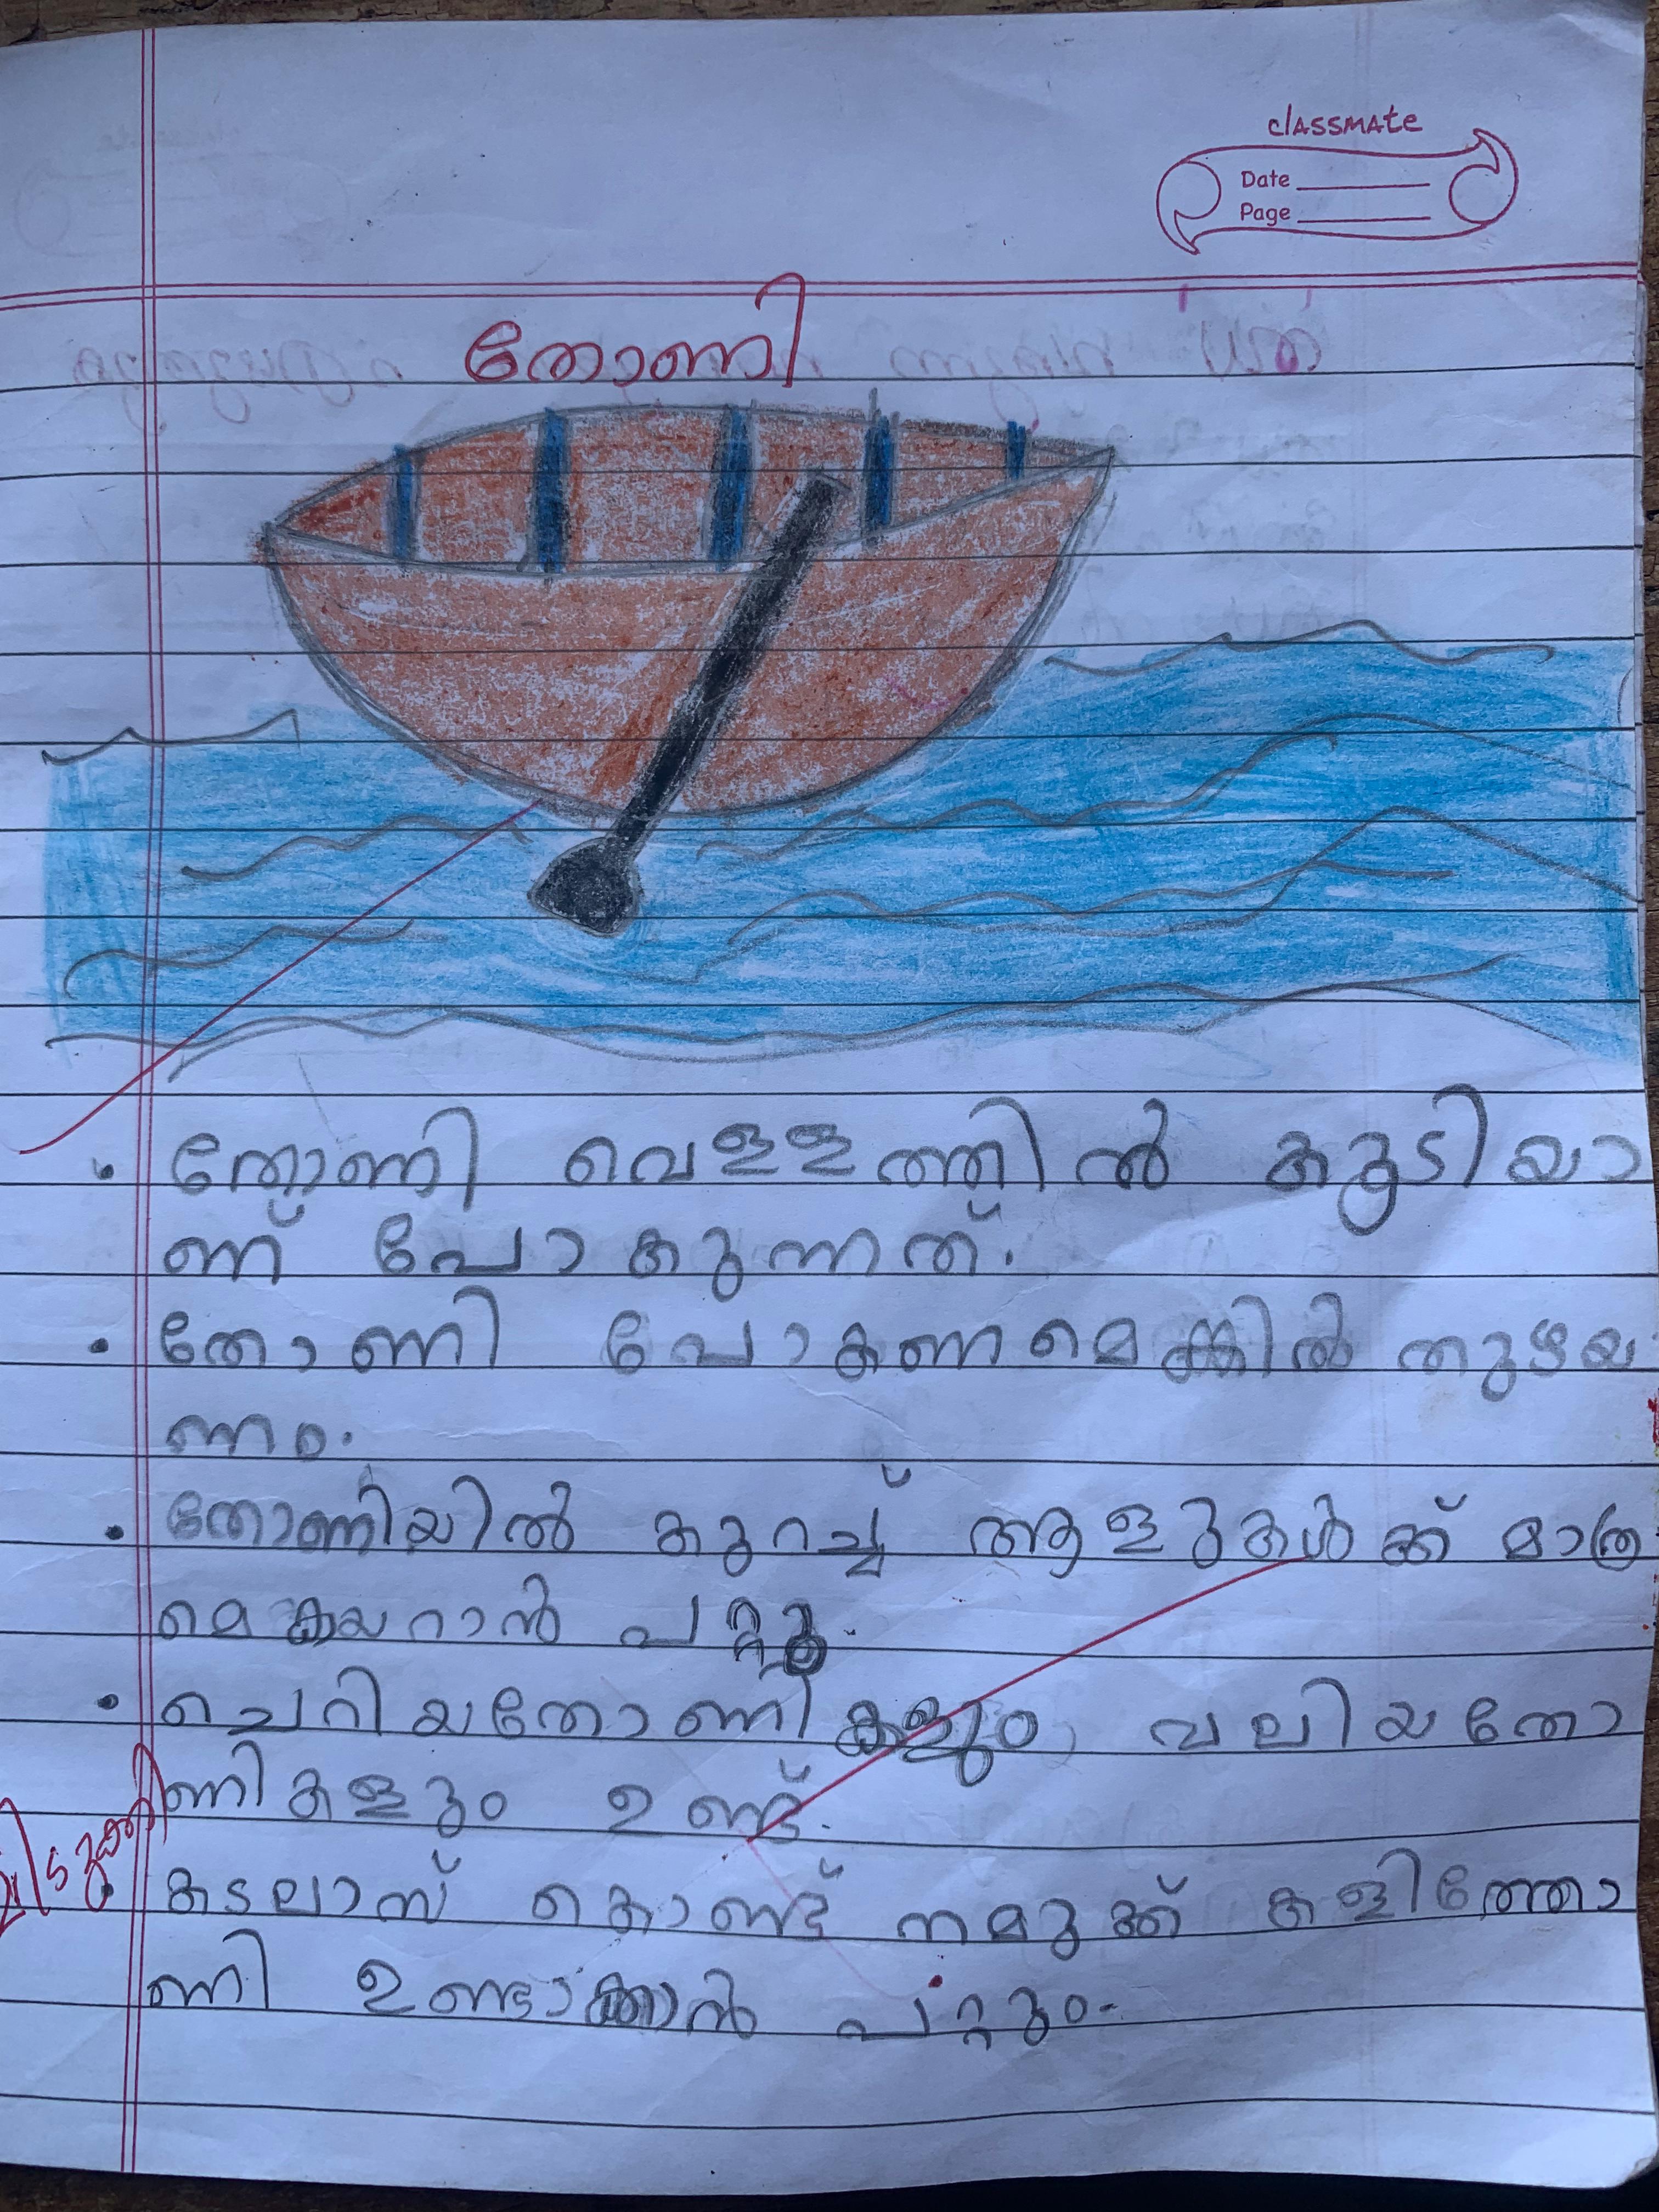 classmate
Date
Page
തോണി
• തോണി വെള്ളത്തിൽ കൂടിയാ
ണ് പോകുന്നത്.
• തോണി പോകണമെങ്കിൽ തുഴയ
ണം.
• തോണിയിൽ കുറച്ച് ആളുകൾക്ക് മാത്ര
മെ കയറാൻ പറ്റൂ.
• ചെറിയതോണികളും, വലിയതോ
ണികളും ഉണ്ട്.
• കടലാസ് കൊണ്ട് നമുക്ക് കളിത്തോ
ണി ഉണ്ടാക്കാൻ പറ്റും.